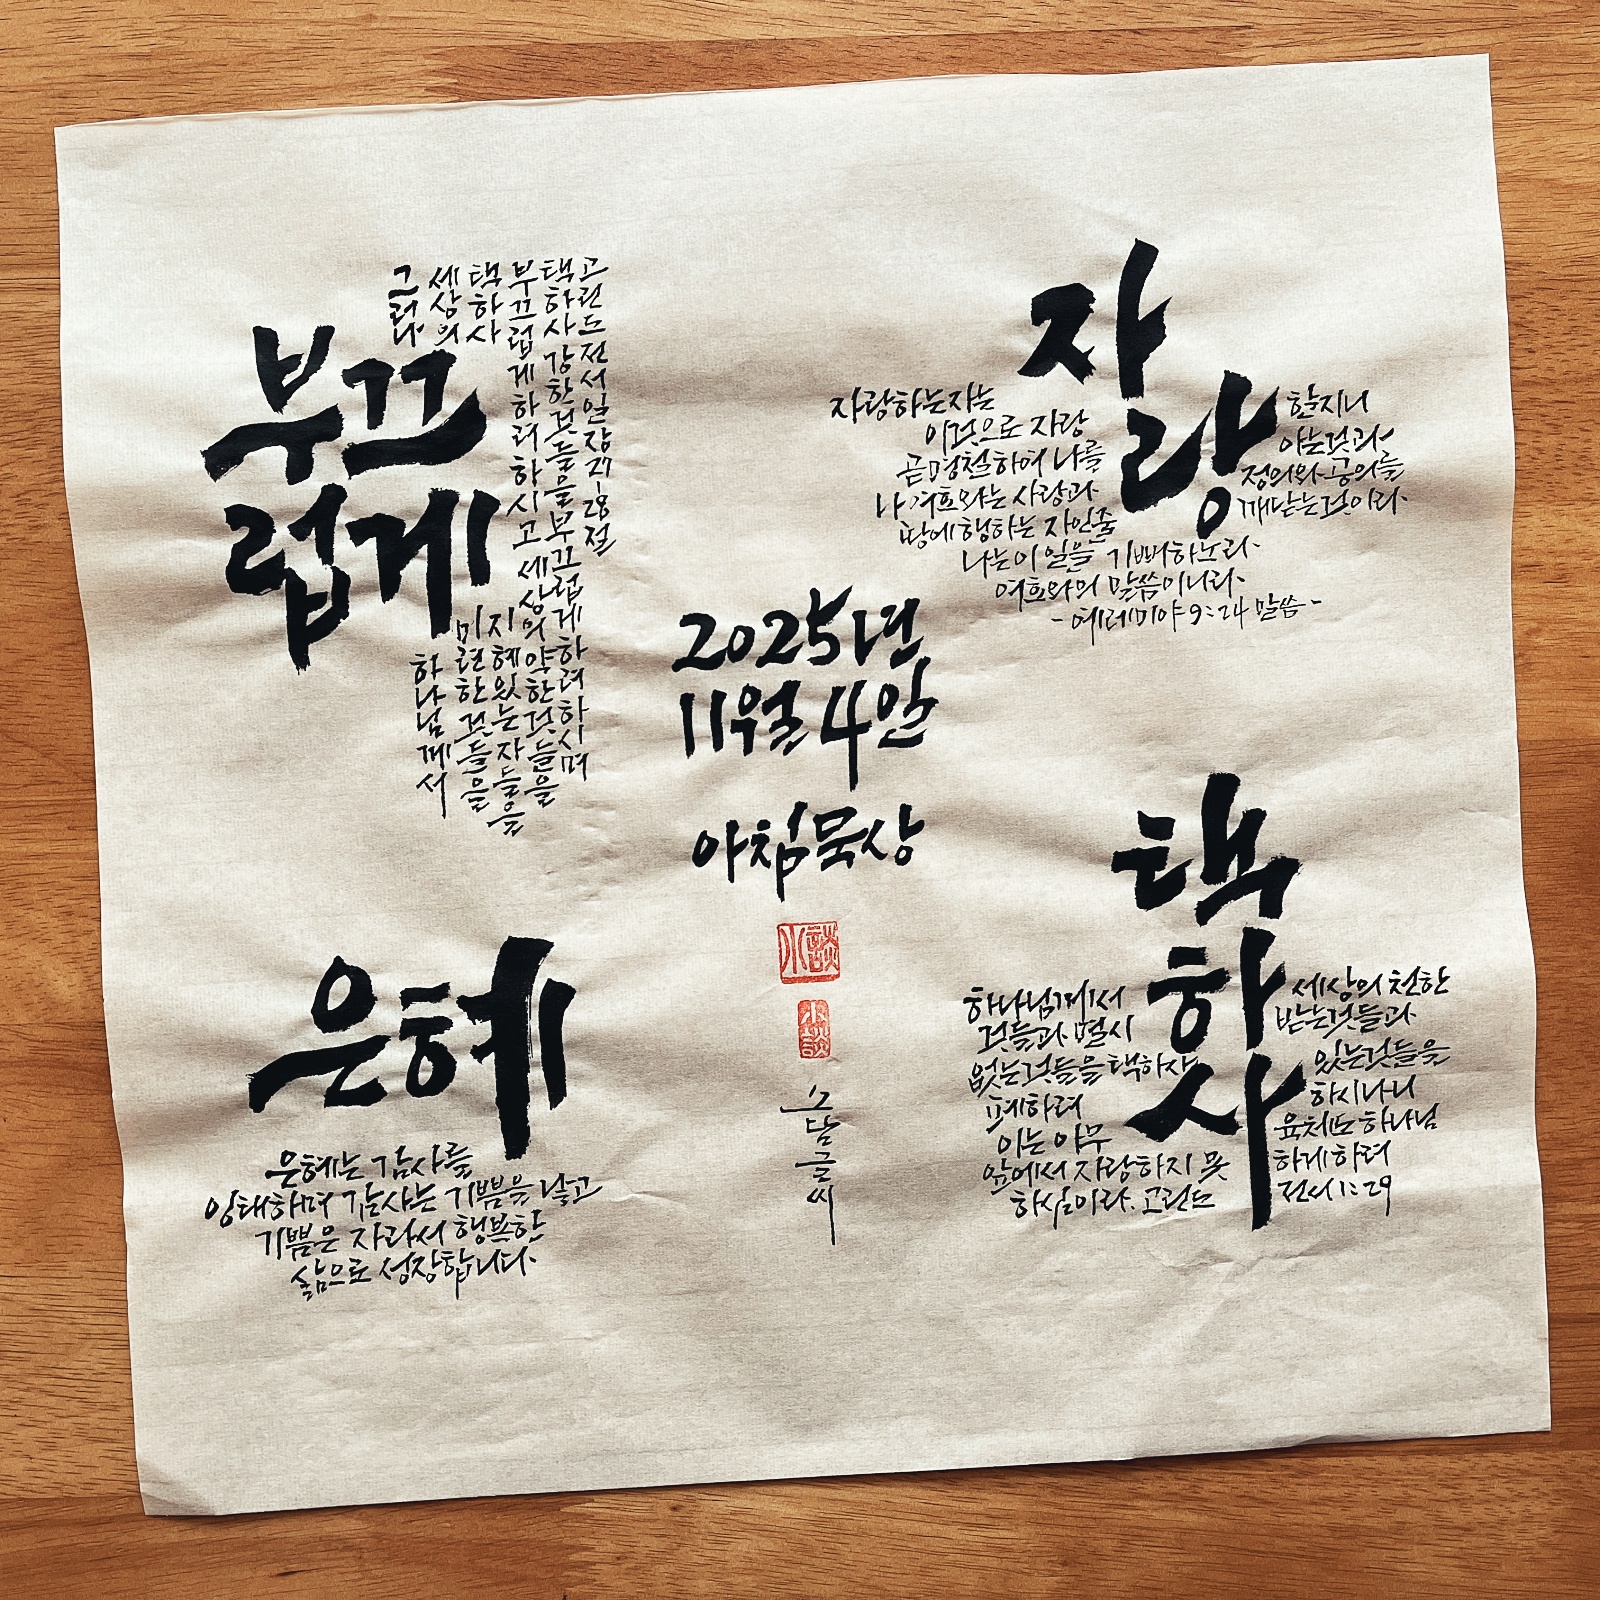 부끄
럽게
그러나
하나님께서
세상의
미련한것들을
택하사
지혜있는자들을
부끄럽게하려하시고
세상의약한것들을
택하사강한것들을부끄럽게하려하시며
고린도전서일장27-28절
자랑
자랑하는자는
이것으로 자랑 할지니
곧 명철하여 나를 아는것과
나 여호와는 사랑과 정의와 공의를
땅에 행하는 자인줄 깨닫는것이라
나는 이 일을 기뻐하노라
여호와의 말씀이니라
-예레미야 9:24 말씀-
2025년
11월 4일
아침묵상
小談
小談
소담글씨
은혜
은혜는 감사를
잉태하며 감사는 기쁨을 낳고
기쁨은 자라서 행복한
삶으로 성장합니다.
택하사
하나님께서 세상의 천한
것들과 멸시 받는것들과
없는것들을 택하사 있는것들을
폐하려 하시나니
이는 아무 육체도 하나님
앞에서 자랑하지 못 하게 하려
하심이라. 고린도 전서 1:29